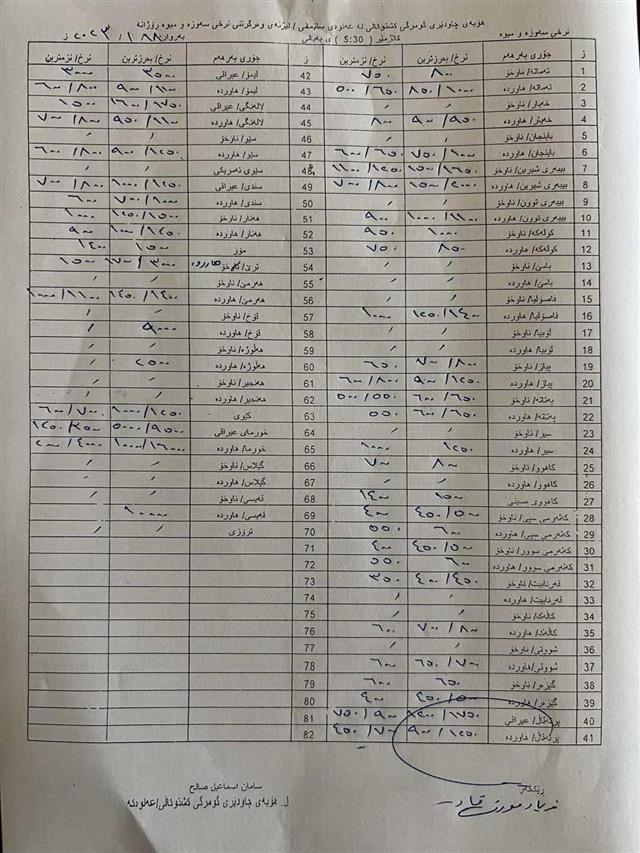 نرخی سەوزە و میوە
هۆبەی چاودێری گومرگی کشتوکاڵی لە عەلوەی سلێمانی / لیژنەی وەرگرتنی نرخی سەوزە و میوە رۆژانە
کاتژمێر ( 5:30 ) ی بەیانی
ز جۆری بەرهەم نرخ/ بەرزترین نرخ/ نزمترین ز جۆری بەرهەم نرخ/ بەرزترین نرخ/ نزمترین
1 تەماتە/ ناوخۆ ٨٠٠ ٧٥٠ 42 لیمۆ/ عیراقی ٣٥٠٠ ٣٠٠٠
2 تەماتە/ هاوردە ١٠٠٠/٨٥٠ ٦٥٠/٥٠٠ 43 لیمۆ/ هاوردە ١١٠٠/٩٠٠ ٨٠٠/٦٠٠
3 خەیار/ ناوخۆ / / 44 لالەنگی/ عیراقی ١٧٥٠/١٦٠٠ ١٥٠٠
4 خەیار/ هاوردە ٩٥٠/٩٠٠ ٨٠٠ 45 لالەنگی/ هاوردە ١١٠٠/٩٥٠ ٨٠٠/٧٠٠
5 باینجان/ ناوخۆ / / 46 سێو/ ناوخۆ / /
6 باینجان/ هاوردە ١٠٠٠/٧٥٠ ٦٥٠/٦٠٠ 47 سێو/ هاوردە ١٢٥٠/٩٠٠ ٨٠٠/٦٠٠
7 بیبەری شیرین/ ناوخۆ ١٦٥٠/١٥٠٠ ١٢٥٠/١١٠٠ 48 سێوی ئەمریکی / /
8 بیبەری شیرین/ هاوردە ٢٠٠٠/١٥٠٠ ٨٠٠/٧٠٠ 49 سندی/ عیراقی ١٢٥٠/١٠٠٠ ٨٠٠/٧٠٠
9 بیبەری توون/ ناوخۆ / / 50 سندی/ هاوردە ٨٠٠/٧٠٠ ٦٠٠
10 بیبەری توون/ هاوردە ١١٠٠/١٠٠٠ ٩٠٠ 51 هەنار/ ناوخۆ ١٥٠٠/١٢٥٠ ١٠٠٠
11 کولەکە/ ناوخۆ ١٠٠٠ ٩٥٠ 52 هەنار/ هاوردە ١٢٥٠/١٠٠٠ ٩٠٠
12 کولەکە/ هاوردە ٨٥٠ ٧٥٠ 53 مۆز ١٥٠٠ ١٤٠٠
13 بامێ/ ناوخۆ / / 54 ترێ/ هاوردە ٣٠٠٠/١٧٠٠ ١٥٠٠
14 بامێ/ هاوردە / / 55 هەرمێ/ ناوخۆ / /
15 فاصۆلیا/ ناوخۆ / / 56 هەرمێ/ هاوردە ١٤٠٠/١٢٥٠ ١١٠٠/١٠٠٠
16 فاصۆلیا/ هاوردە ١٤٠٠/١٢٥٠ ١٠٠٠ 57 قۆخ/ ناوخۆ / /
17 لۆبیا/ ناوخۆ / / 58 قۆخ/ هاوردە ٩٠٠٠ /
18 لۆبیا/ هاوردە / / 59 هەڵوژە/ ناوخۆ / /
19 پیاز/ ناوخۆ ٨٠٠/٧٠٠ ٦٥٠ 60 هەڵوژە/ هاوردە ٢٥٠٠ /
20 پیاز/ هاوردە ١٢٥٠/٩٠٠ ٨٠٠/٦٠٠ 61 هەنجیر/ ناوخۆ / /
21 پەتاتە/ ناوخۆ ٦٥٠/٦٠٠ ٥٥٠/٥٠٠ 62 هەنجیر/ هاوردە / /
22 پەتاتە/ هاوردە ٦٥٠/٦٠٠ ٥٥٠ 63 کیوی ١٢٥٠/١٠٠٠ ٧٠٠/٦٠٠
23 سیر/ ناوخۆ / / 64 خورمای عیراقی ٩٥٠٠/٥٠٠٠ ٣٥٠٠/١٢٥٠
24 سیر/ هاوردە ١٢٥٠ ١٠٠٠ 65 خورما/ هاوردە ١٦٠٠٠/١٠٠٠٠ ٤٠٠٠/٢٠٠٠
25 کاهوو/ ناوخۆ ٨٠٠ ٧٠٠ 66 گێلاس/ ناوخۆ / /
26 کاهوو/ هاوردە / / 67 گێلاس/ هاوردە / /
27 کاهووی صینی ١٥٠٠ ١٤٠٠ 68 قەیسی/ ناوخۆ / /
28 کەلەرمی سپی/ ناوخۆ ٥٠٠/٤٥٠ ٤٠٠ 69 قەیسی/ هاوردە ١٠٠٠٠ /
29 کەلەرمی سپی/ هاوردە ٦٠٠ ٥٥٠ 70 ترۆزی / /
30 کەلەرمی سوور/ ناوخۆ ٥٠٠/٤٥٠ ٤٠٠ 71
31 کەلەرمی سوور/ هاوردە ٦٠٠ ٥٥٠ 72
32 قەرنابیت/ ناوخۆ ٤٥٠/٤٠٠ ٣٥٠ 73
33 قەرنابیت/ هاوردە / / 74
34 کاڵەک/ ناوخۆ / / 75
35 کاڵەک/ هاوردە ٨٠٠/٧٠٠ ٦٠٠ 76
36 شووتی/ ناوخۆ / / 77
37 شووتی/ هاوردە ٧٠٠/٦٥٠ ٦٠٠ 78
38 گێزەر/ ناوخۆ ٦٥٠ ٦٠٠ 79
39 گێزەر/ هاوردە ٥٠٠/٤٥٠ ٤٠٠ 80
40 پرتەقاڵ/ عیراقی ١٧٥٠/١٢٠٠ ٩٠٠/٧٥٠ 81
41 پرتەقاڵ/ هاوردە ١٢٥٠/٩٠٠ ٧٠٠/٤٥٠ 82
رێکخەر
سامان اسماعیل صالح
ل. هۆبەی چاودێری گومرگی کشتوکاڵی/عەلوەکە